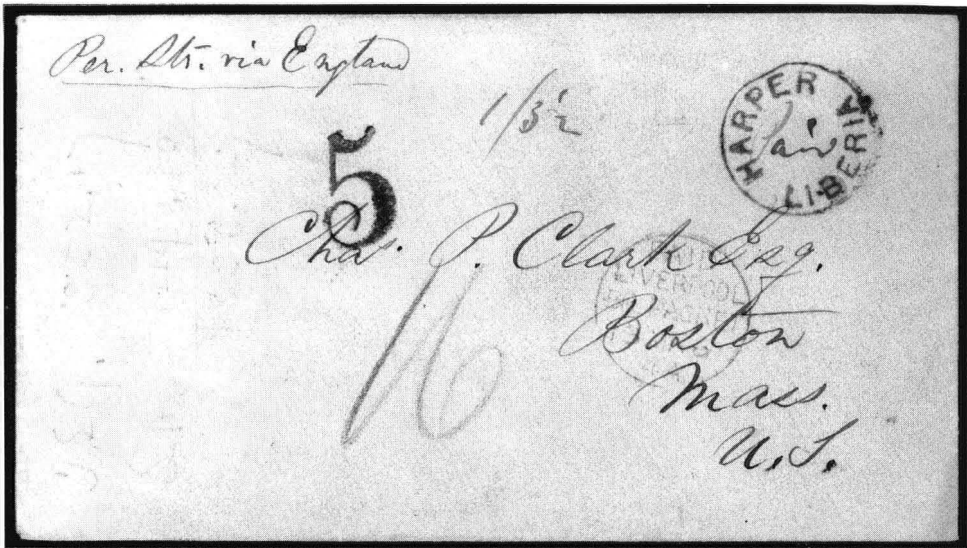 Per. Str. via England
1/3½
HARPER
LIBERIA
5
Chas. P. Clark Esq.
LIVERPOOL
Boston
Mass.
U.S.